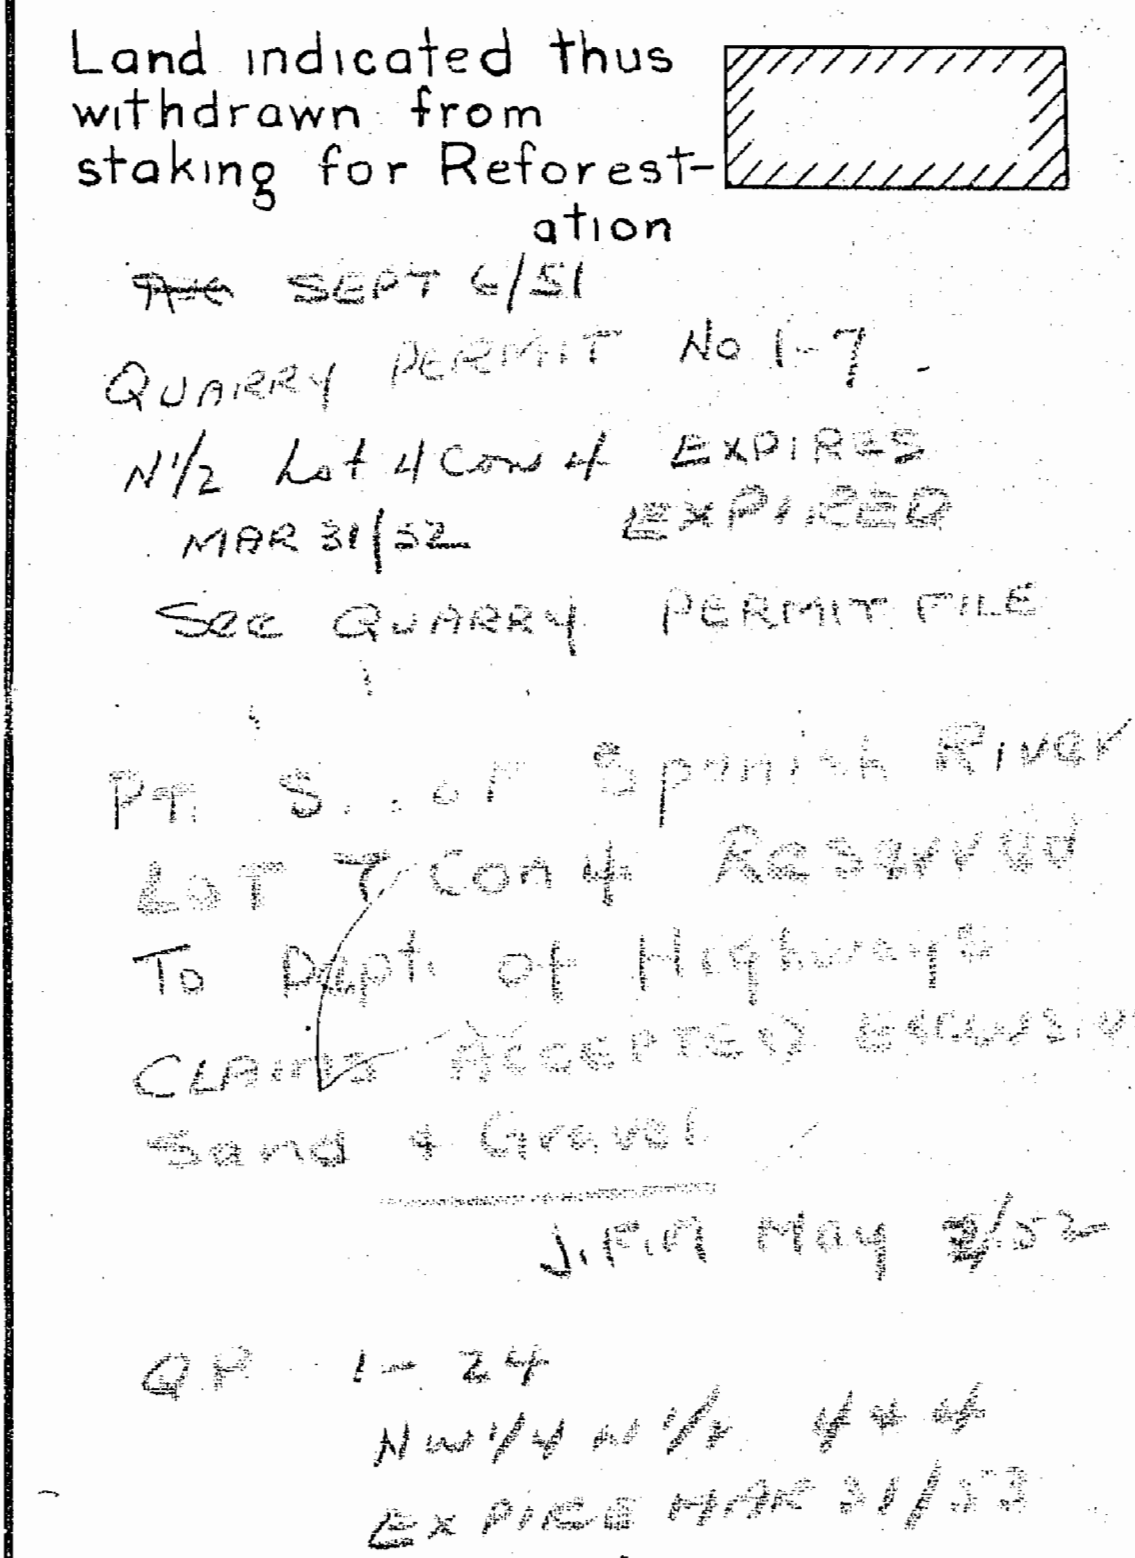 Land indicated thus
withdrawn from
staking for Reforest-
ation
SEPT 6/51
QUARRY PERMIT No 1-7
N1/2 Lot 4 Con 4 EXPIRES
MAR 31/52 EXPIRED
See QUARRY PERMIT FILE
PT. S... of Spanish River
LOT 7 Con 4 Reserved
To Dept. of Highways
CLAIMS ACCEPTED
Sand + Gravel
May /52
QP 1-24
NW 1/4 N 1/2 4 + 4
EXPIRE MAR 31/53